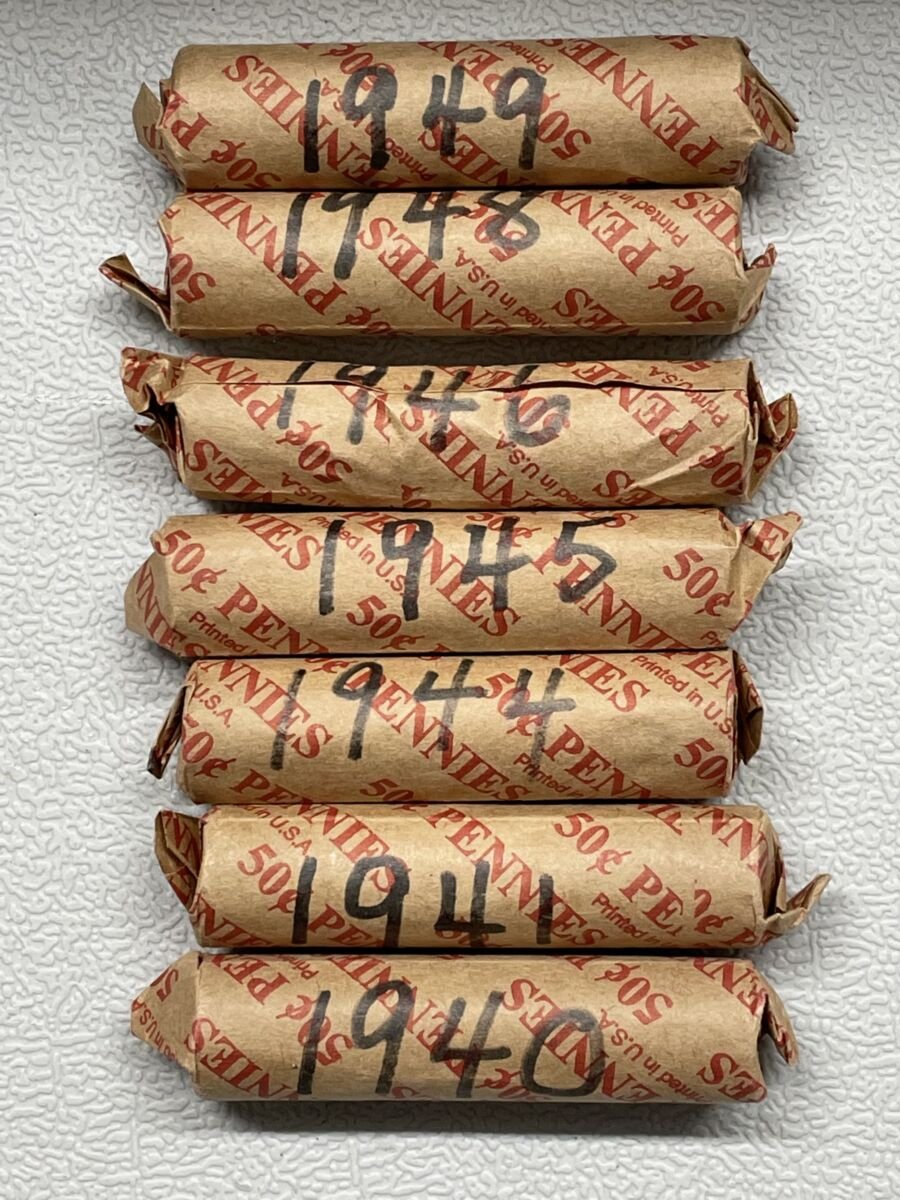 1949
50¢ PENNIES
Printed in U.S.A.
1948
50¢ PENNIES
Printed in U.S.A.
1946
50¢ PENNIES
Printed in U.S.A.
1945
50¢ PENNIES
Printed in U.S.A.
1944
50¢ PENNIES
Printed in U.S.A
1941
50¢ PENNIES
Printed in U.S.A
1940
50¢ PENNIES
Printed in U.S.A